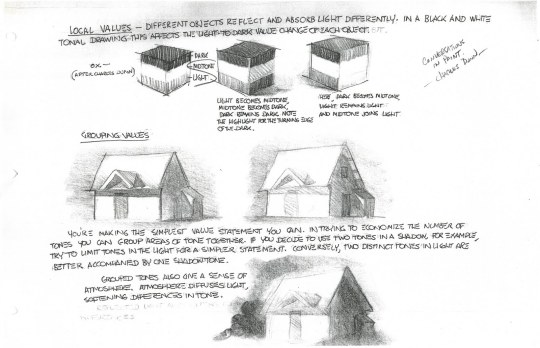 LOCAL VALUES – DIFFERENT OBJECTS REFLECT AND ABSORB LIGHT DIFFERENTLY. IN A BLACK AND WHITE
TONAL DRAWING THIS AFFECTS THE LIGHT-TO-DARK VALUE CHANGE OF EACH OBJECT.
EX. –
(AFTER CHARLES DUNN)
DARK
MIDTONE
LIGHT
LIGHT BECOMES MIDTONE,
MIDTONE BECOMES DARK,
DARK REMAINS DARK. NOTE
THE HIGHLIGHT FOR THE TURNING EDGE
OF THE DARK.
HERE, DARK BECOMES MIDTONE,
LIGHT REMAINS LIGHT
AND MIDTONE JOINS LIGHT
CONVERSATIONS
IN PAINT
– CHARLES DUNN
GROUPING VALUES
YOU'RE MAKING THE SIMPLEST VALUE STATEMENT YOU CAN. IN TRYING TO ECONOMIZE THE NUMBER OF
TONES YOU CAN GROUP AREAS OF TONE TOGETHER. IF YOU DECIDE TO USE TWO TONES IN A SHADOW, FOR EXAMPLE,
TRY TO LIMIT TONES IN THE LIGHT FOR A SIMPLER STATEMENT. CONVERSELY, TWO DISTINCT TONES IN LIGHT ARE
BETTER ACCOMPANIED BY ONE SHADOW TONE.
GROUPED TONES ALSO GIVE A SENSE OF
ATMOSPHERE. ATMOSPHERE DIFFUSES LIGHT,
SOFTENING DIFFERENCES IN TONE.